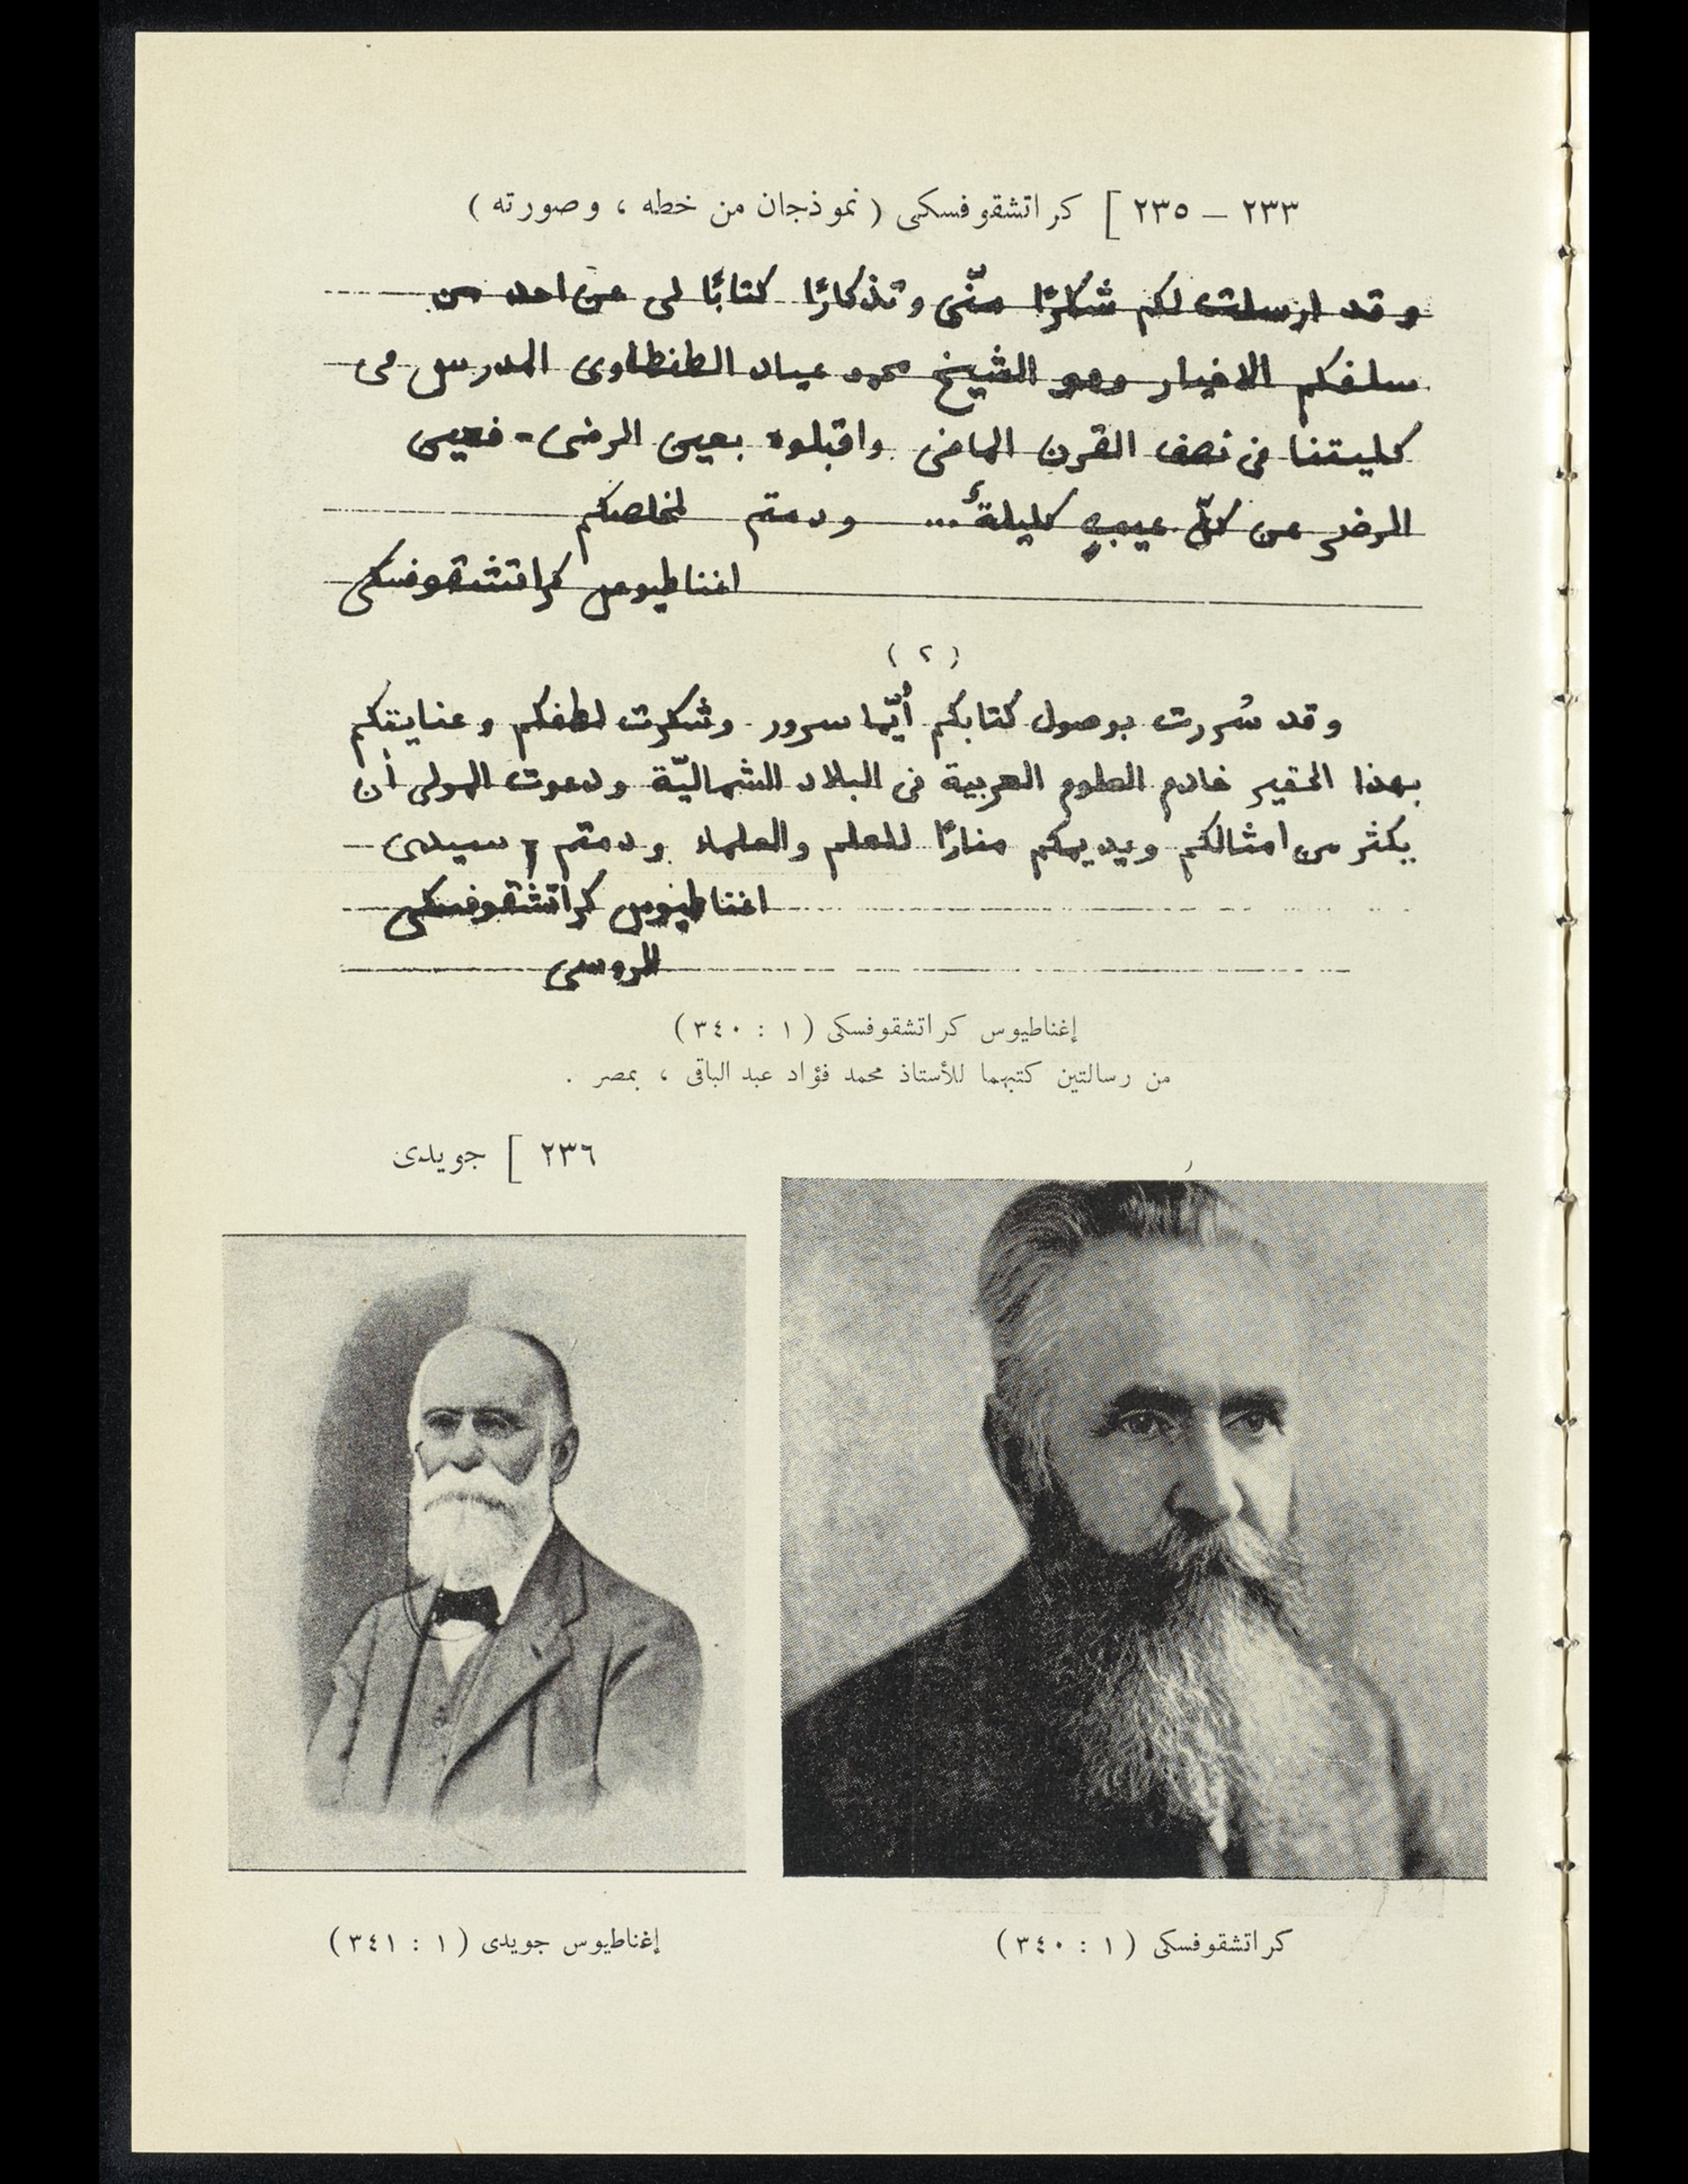 ٢٣٣ – ٢٣٥ ] كراتشقوفسكى ( نموذجان من خطه ، وصورته )
وقد ارسلت لكم شكرًا منّى وتذكارًا كتابًا لى عن احد من
سلفكم الاخيار وهو الشيخ محمد عياد الطنطاوى المدرس فى
كليتنا فى نصف القرن الماضى واقبلوه بعين الرضى - فعين
الرضى عن كلّ عيبٍ كليلةٌ ... ودمتم لمخلصكم
اغناطيوس كراتشقوفسكى
( ٢ )
وقد سُررت بوصول كتابكم أيّما سرور وشكرت لطفكم وعنايتكم
بهذا الحقير خادم العلوم العربية فى البلاد الشماليّة ودعوت المولى أن
يكثر من امثالكم ويديمكم منارًا للعلم والعلماء ودمتم سيدى
اغناطيوس كراتشقوفسكى
الروسى
إغناطيوس كراتشقوفسكى ( ١ : ٣٤٠ )
من رسالتين كتبهما للأستاذ محمد فؤاد عبد الباقى ، بمصر .
٢٣٦ ] جويدى
كراتشقوفسكى ( ١ : ٣٤٠ )
إغناطيوس جويدى ( ١ : ٣٤١ )